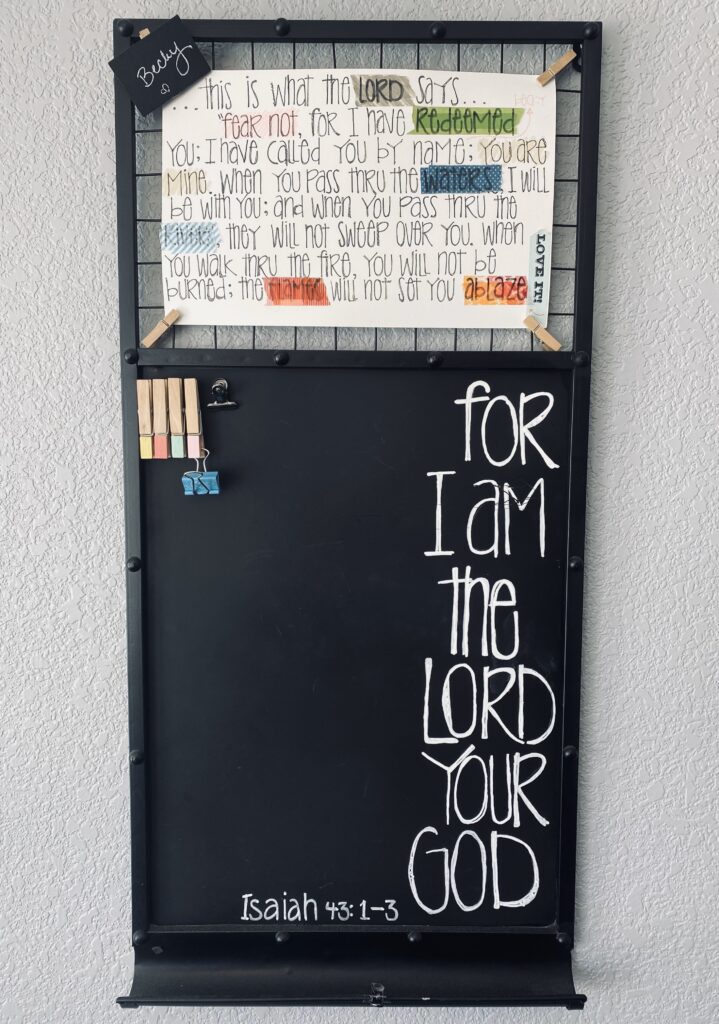 Becky
...this is what the LORD says...
"fear not, for I have Redeemed
You; I have called you by name; You are
Mine. when you pass thru the waters, I will
be with you; and when you pass thru the
rivers, they will not sweep over you. when
you walk thru the fire, you will not be
burned; the flames will not set you ablaze
LOVE IT!
for
I am
the
LORD
YOUR
GOD
Isaiah 43:1-3